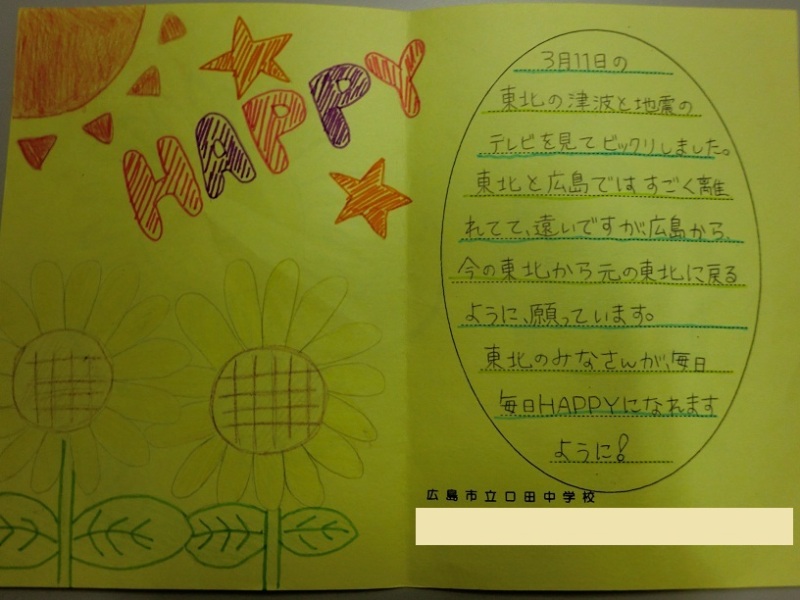 HAPPY
3月11日の
東北の津波と地震の
テレビを見てビックリしました。
東北と広島ではすごく離
れてて、遠いですが、広島から、
今の東北から元の東北に戻る
ように、願っています。
東北のみなさんが、毎日
毎日HAPPYになれます
ように!
広島市立口田中学校